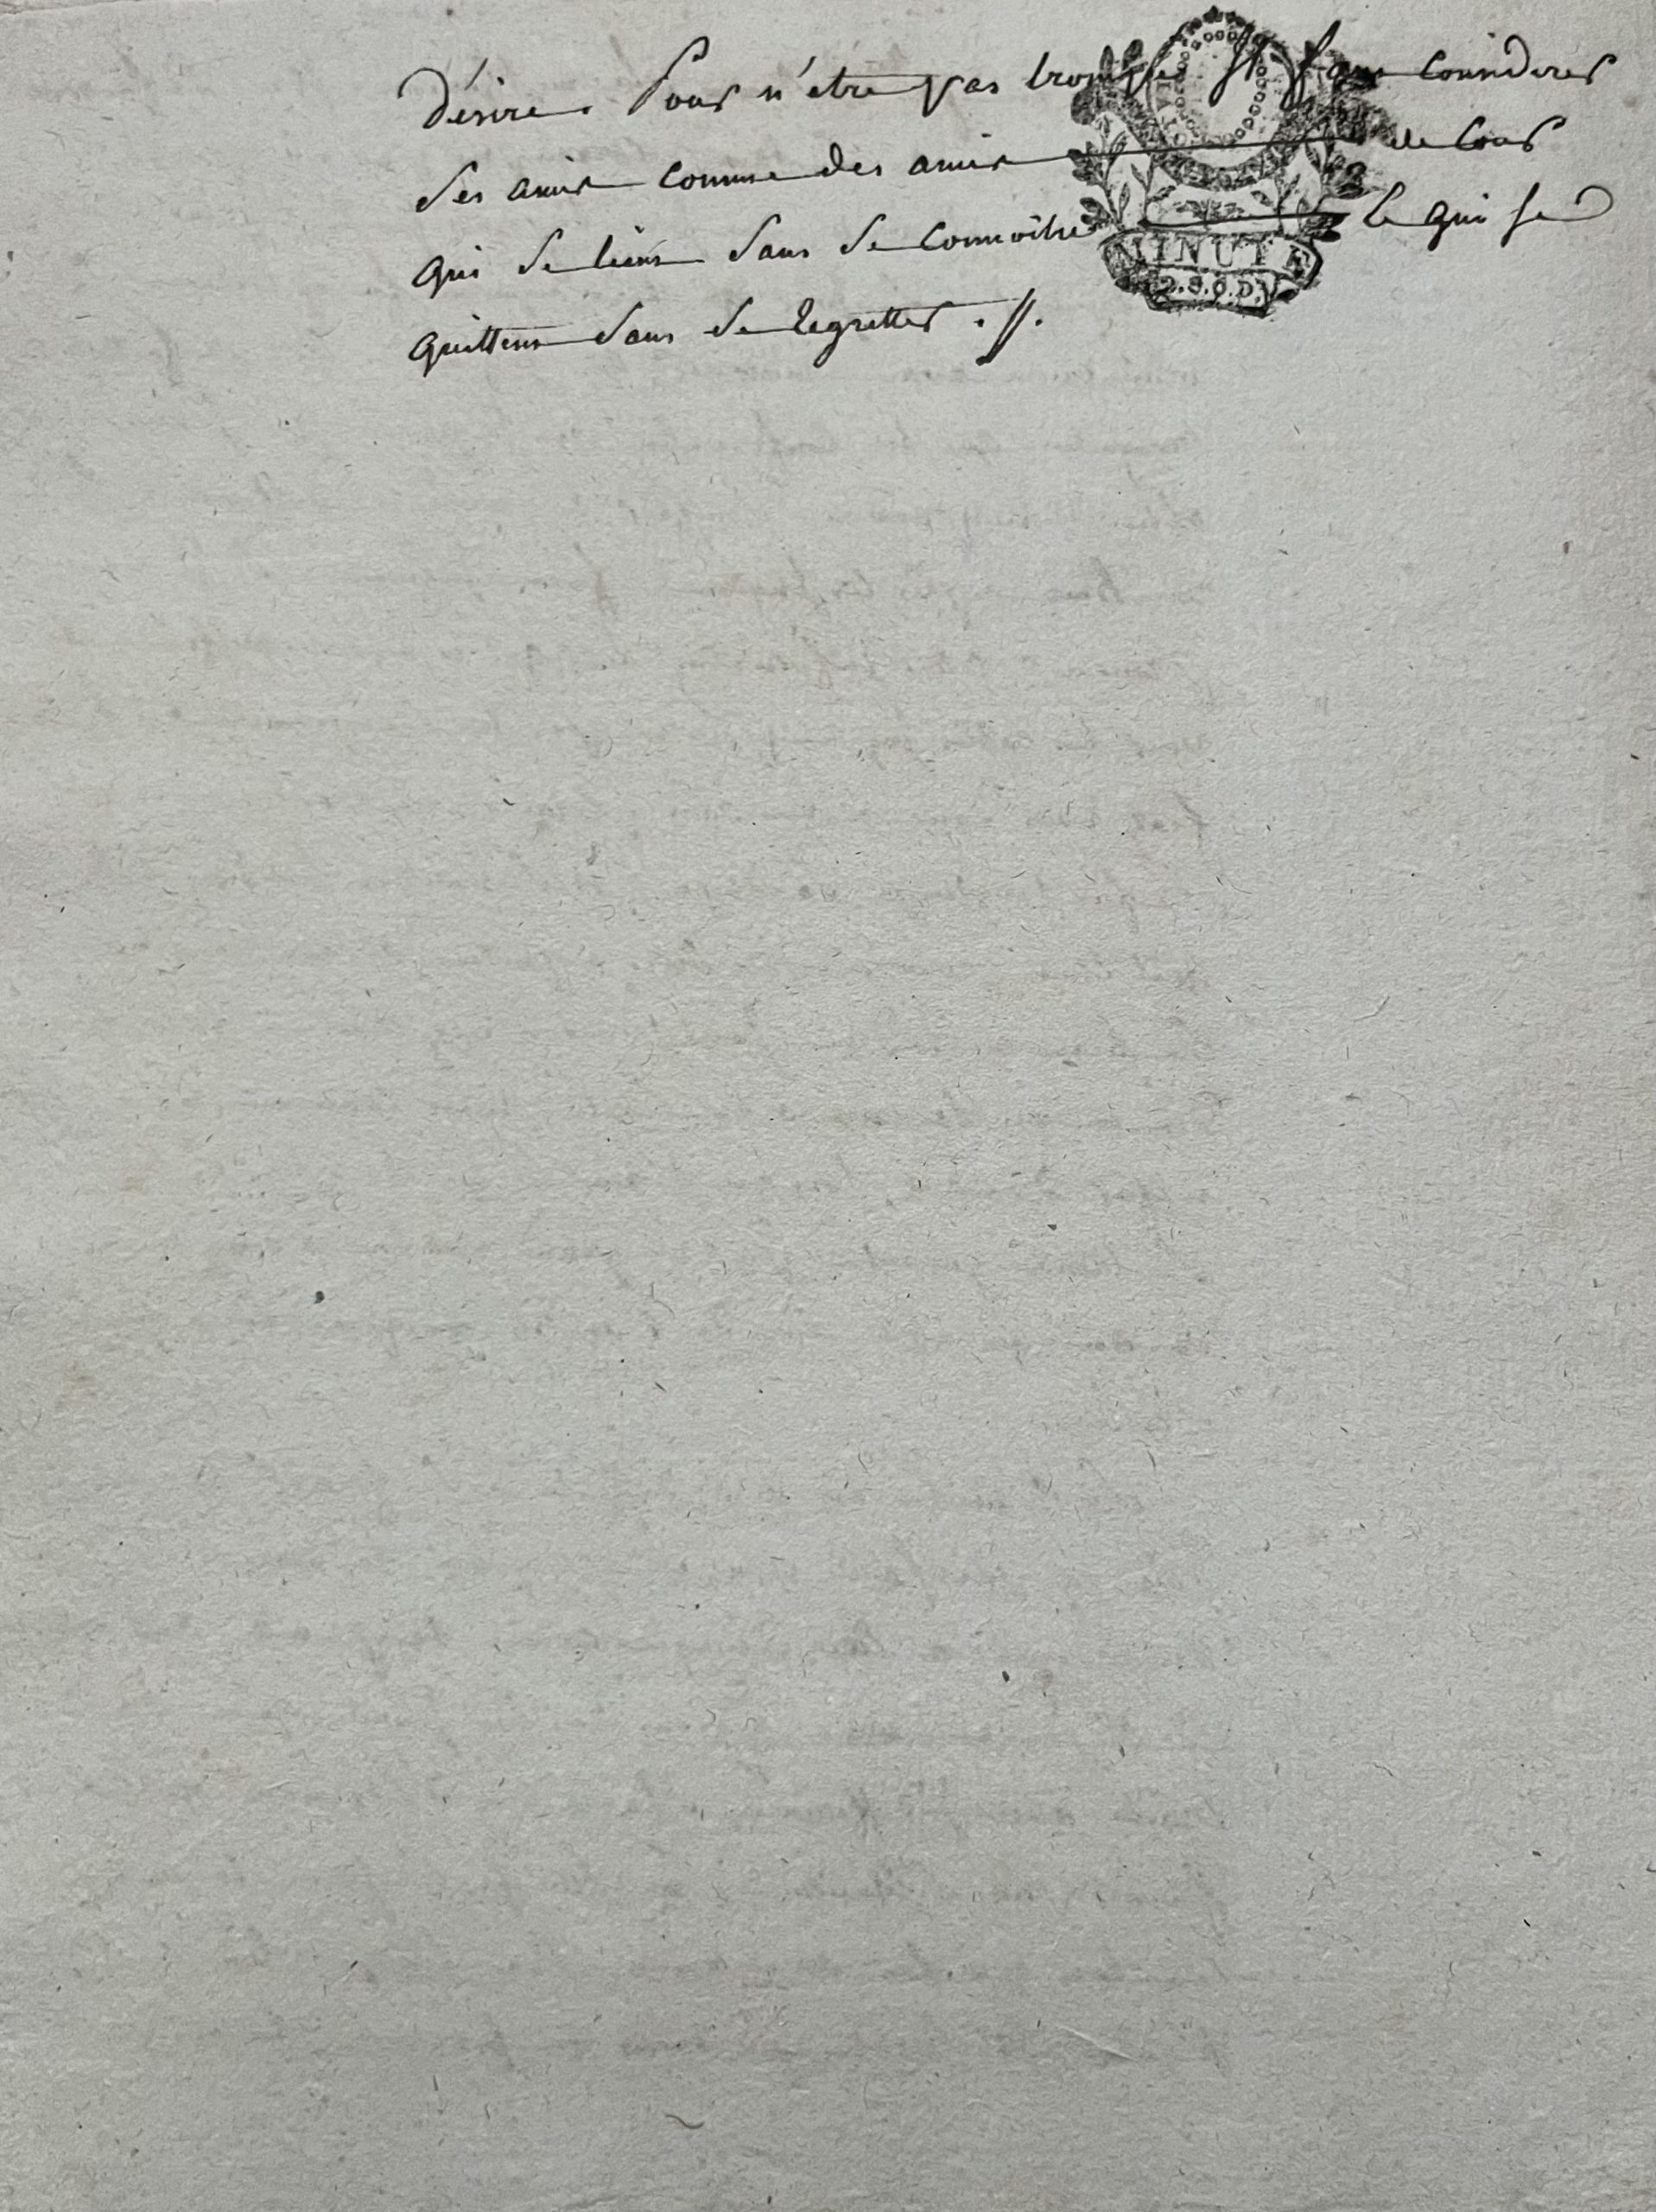 désire. Pour n'etre pas trompé il faut considerer
ses amis comme des amis de cour
qui se liens sans se connoître et qui se
quittens sans se regretter .//.
MINUTE
D.S.O.D.